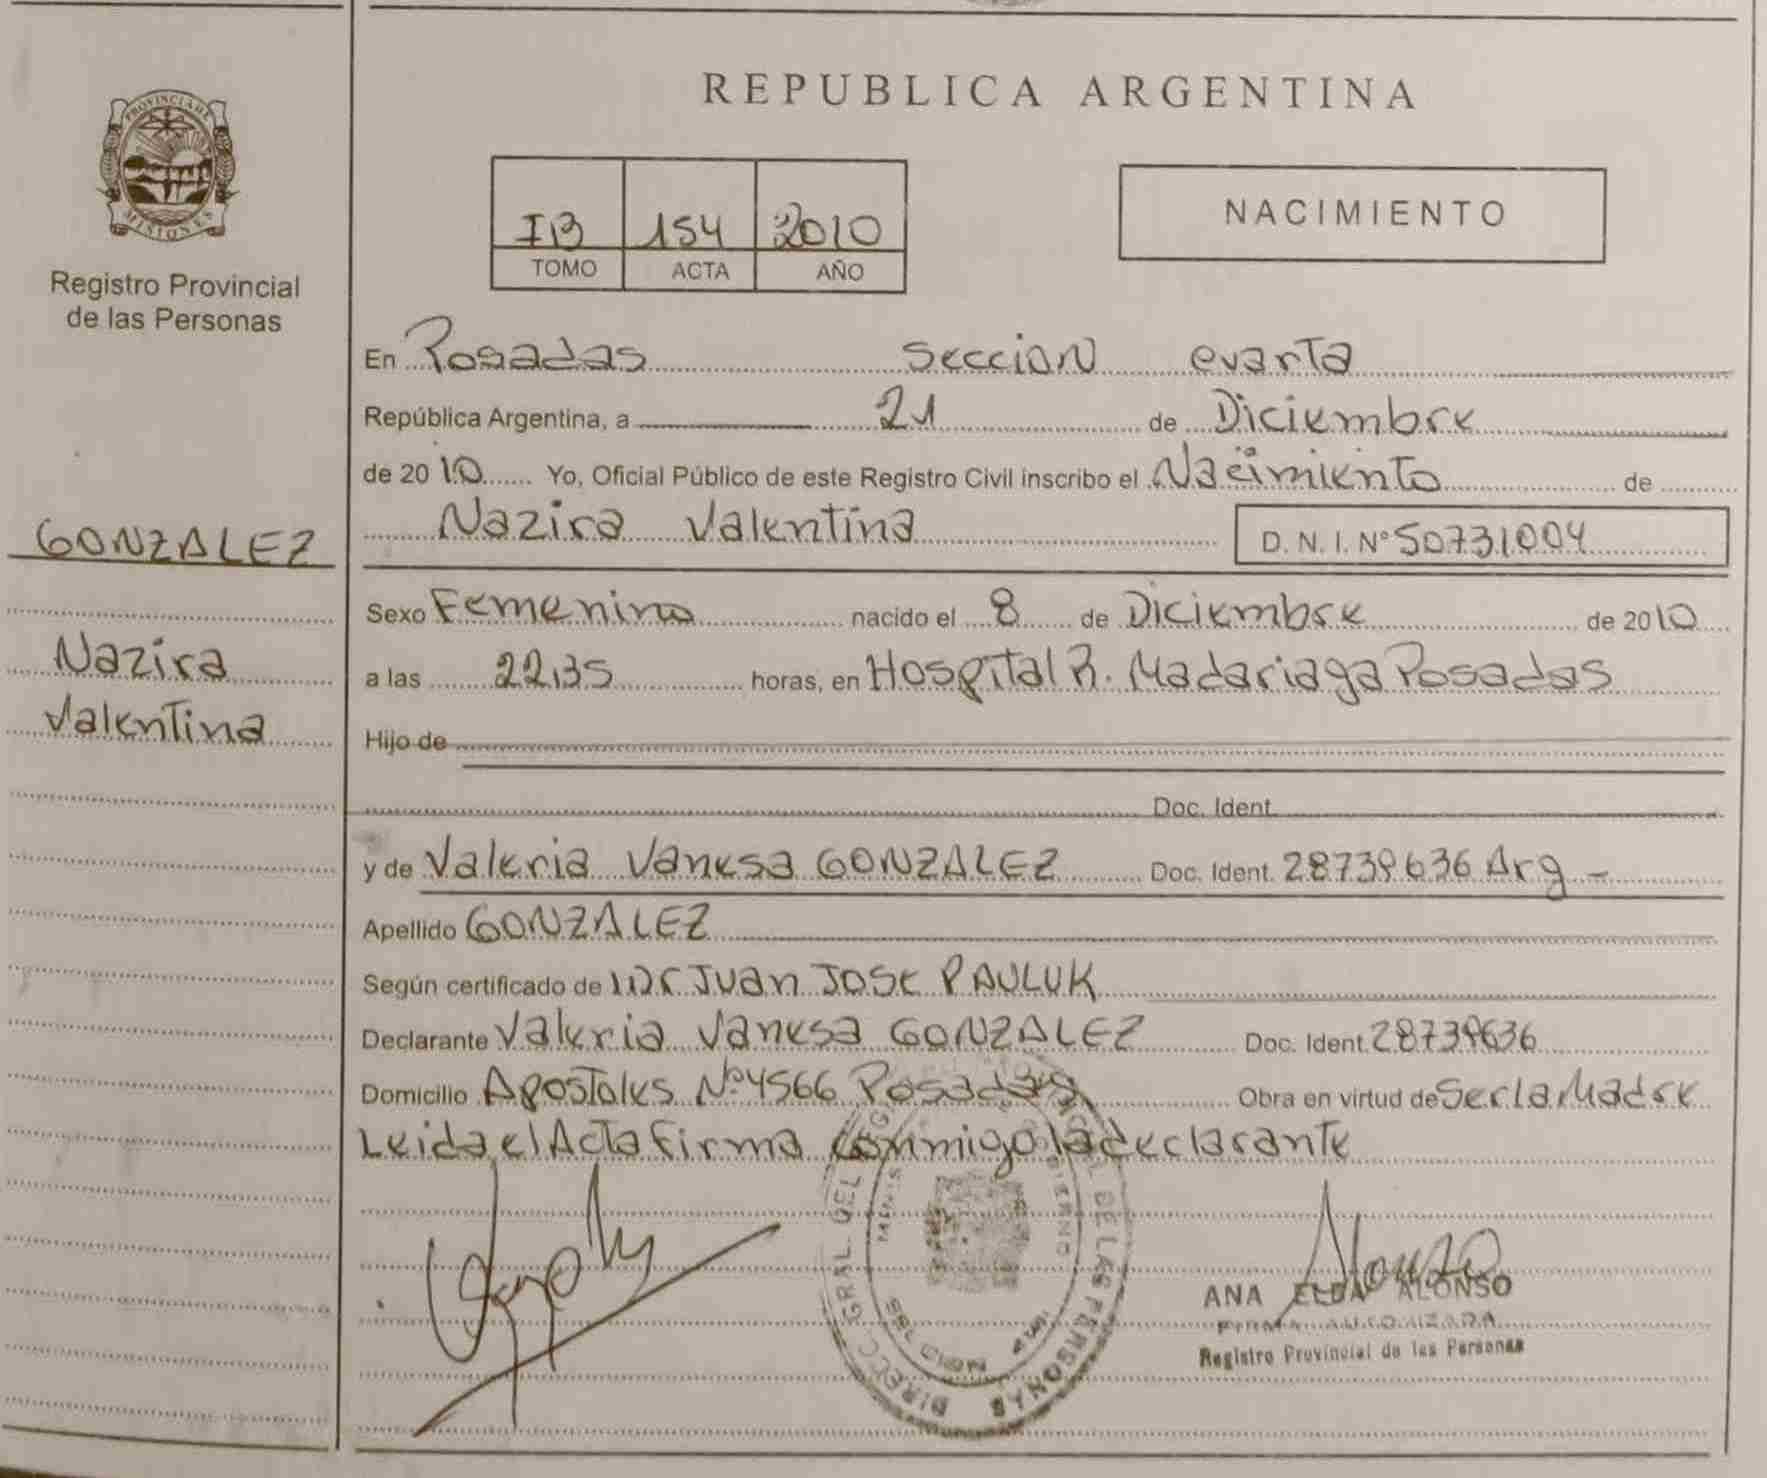 REPUBLICA ARGENTINA
PROVINCIA DE
MISIONES
Registro Provincial
de las Personas
IB 154 2010
TOMO ACTA AÑO
NACIMIENTO
GONZALEZ
Nazira
Valentina
En Posadas Seccion cuarta
República Argentina, a 21 de Diciembre
de 2010 Yo, Oficial Público de este Registro Civil inscribo el Nacimiento de
Nazira Valentina D. N. I. Nº 50731004
Sexo Femenino nacido el 8 de Diciembre de 2010
a las 22,35 horas, en Hospital R. Madariaga Posadas
Hijo de
Doc. Ident.
y de Valeria Vanesa GONZALEZ Doc. Ident. 28739636 Arg -
Apellido GONZALEZ
Según certificado de Juan Jose PAULUK
Declarante Valeria Vanesa GONZALEZ Doc. Ident. 28739636
Domicilio Apostoles Nº 4566 Posadas Obra en virtud de Ser la Madre
Leida el Acta Firma conmigo la declarante
DIRECC. GRAL. DEL DE LAS PERSONAS
Alonso
ANA ELDA ALONSO
FIRMA AUTORIZADA
Registro Provincial de las Personas